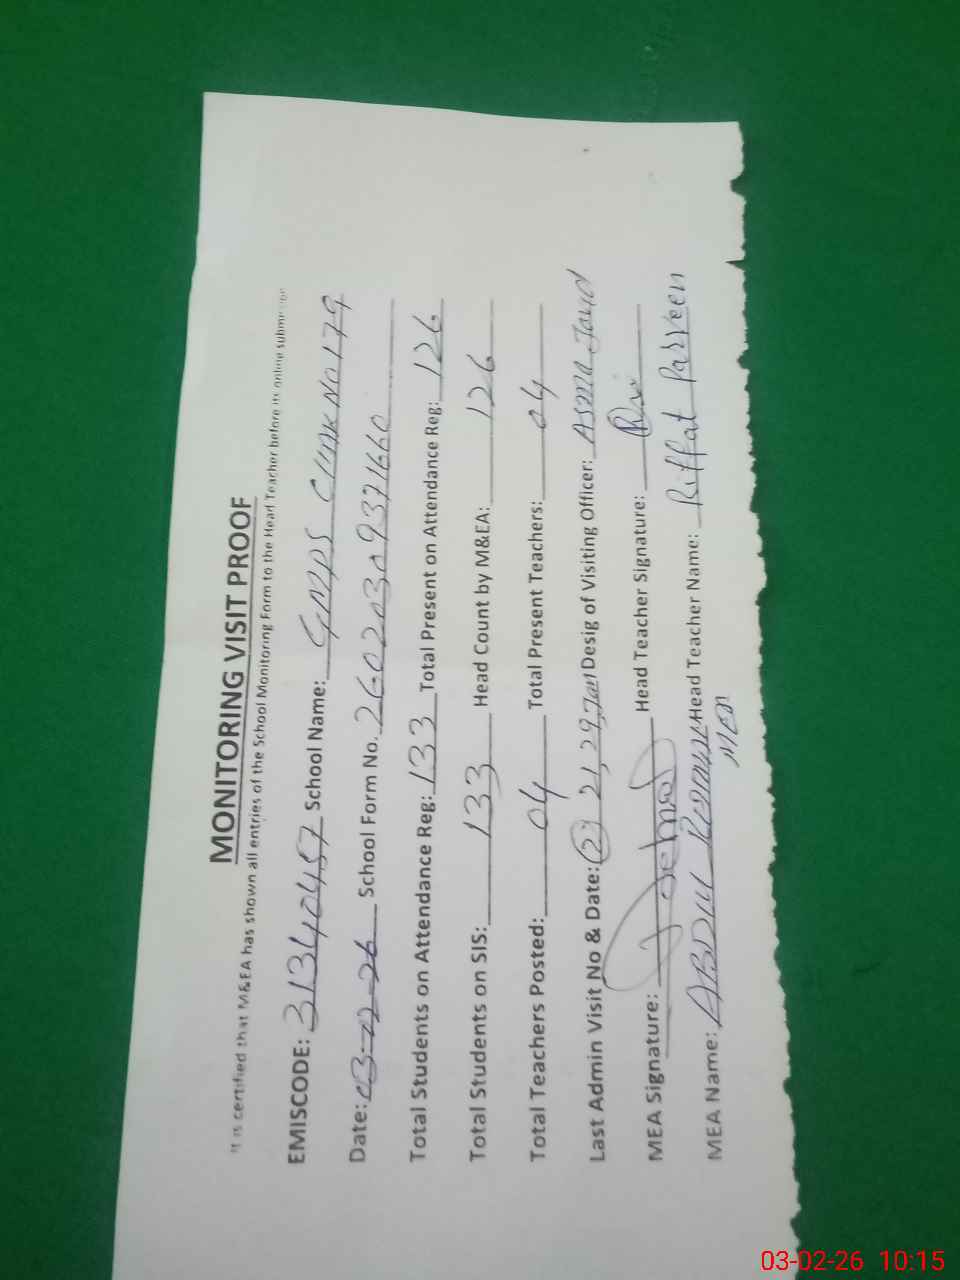 MONITORING VISIT PROOF
It is certified that M&EA has shown all entries of the School Monitoring Form to the Head Teacher before its online submission
EMISCODE: 31340457 School Name: GMPS CHAK NO 179
Date: 03-02-26 School Form No. 26020309371660
Total Students on Attendance Reg: 133 Total Present on Attendance Reg: 126
Total Students on SIS: 133 Head Count by M&EA: 126
Total Teachers Posted: 04 Total Present Teachers: 04
Last Admin Visit No & Date: (2) 21, 29, Jan Desig of Visiting Officer: Asma Javed
MEA Signature: Head Teacher Signature:
MEA Name: ABDUL Head Teacher Name: Riffat Parveen
MEA
03-02-26 10:15